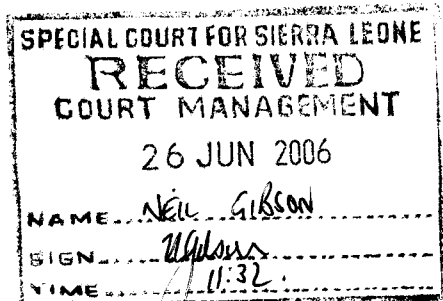 SPECIAL COURT FOR SIERRA LEONE
RECEIVED
COURT MANAGEMENT
26 JUN 2006
NAME NEIL GIBSON
SIGN NGibson
TIME 11:32.